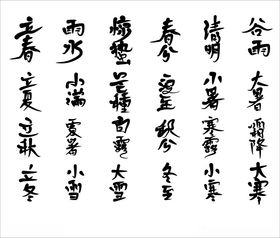 立春 雨水 惊蟄 春分 清明 谷雨
立夏 小滿 芒種 夏至 小暑 大暑
立秋 處暑 白露 秋分 寒露 霜降
立冬 小雪 大雪 冬至 小寒 大寒